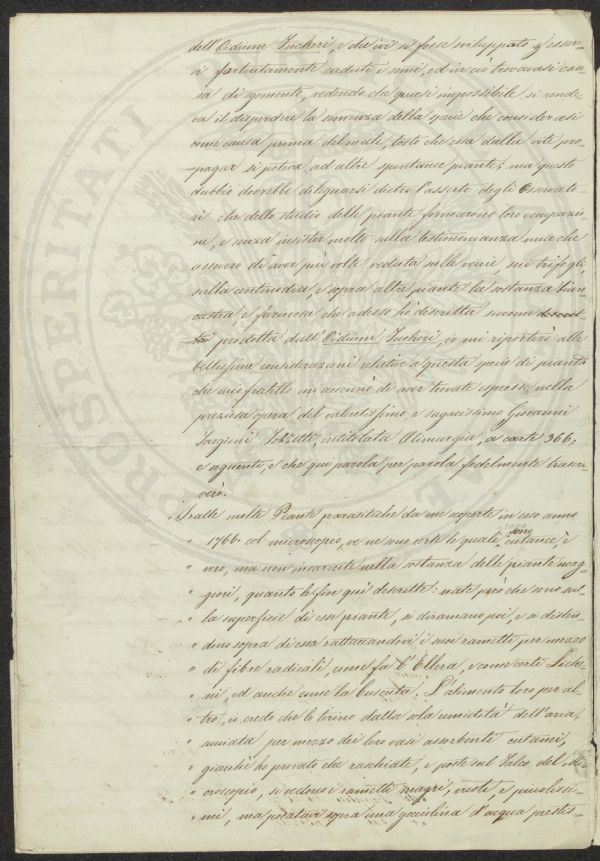 dell'Oidium Tuckeri, e che ivi si fosse sviluppato p esser-
vi fortuitamente caduti i semi, ed in ciò trovavasi cau-
sa di sgomento, vedendo che quasi impossibile si rende-
va il disperdere la semenza della quale che consideravasi
come causa prima del male, tosto che essa dalla vite pro-
pagar si poteva ad altre spontanee piante; ma questo
dubbio dovrebbe dileguarsi dietro l'asserto degli Osservato-
ri che dello studio delle piante formarono loro occupazio-
ne, e senza insister molto sulla testimonianza mia che
assevero di aver più volte veduta sulle vecce, sui trifogli,
sulla centinodia, e sopra altre piante la sostanza bian-
castra e farinosa che adesso ho descritta siccome
prodotta dall'Oidium Tuckeri, io mi riporterò alle
bellissime considerazioni relative a questa specie di piante
che mio fratello mi accennò di aver trovate espresse nella
preziosa opera del valentissimo, e sagacissimo Giovanni
Targioni Tozzetti, intitolata Alimurgia, a carte 366,
e seguente, e che qui parola per parola fedelmente trascri-
verò.
Tralle molte Piante parasitiche da me scoperte in esso anno
" 1766. col microscopio, ve ne sono certe le quali sono cutanee è
" vero, ma non incarnite nella sostanza delle piante mag-
" giori, quanto le fin qui descritte: nate però che sono sul-
" la superficie di esse piante, si diramano poi, e si disten-
" dono sopra di essa rattaccandovi i suoi rametti per mezzo
" di fibre radicali, come fa l'Ellera, e come certi Liche-
" ni, ed anche come la Cuscuta. L'alimento loro per al-
" tro, io credo che lo tirino dalla sola umidità dell'aria,
" succiata per mezzo dei loro vasi assorbenti cutanei,
" giacchè ho provato che raschiate, e poste sul Talco del Mi-
" croscopio, si vedono i rametti magri, vuoti e piccolissi-
" mi, ma posatavi sopra una gocciolina d'acqua prestis-
PROSPERITATI